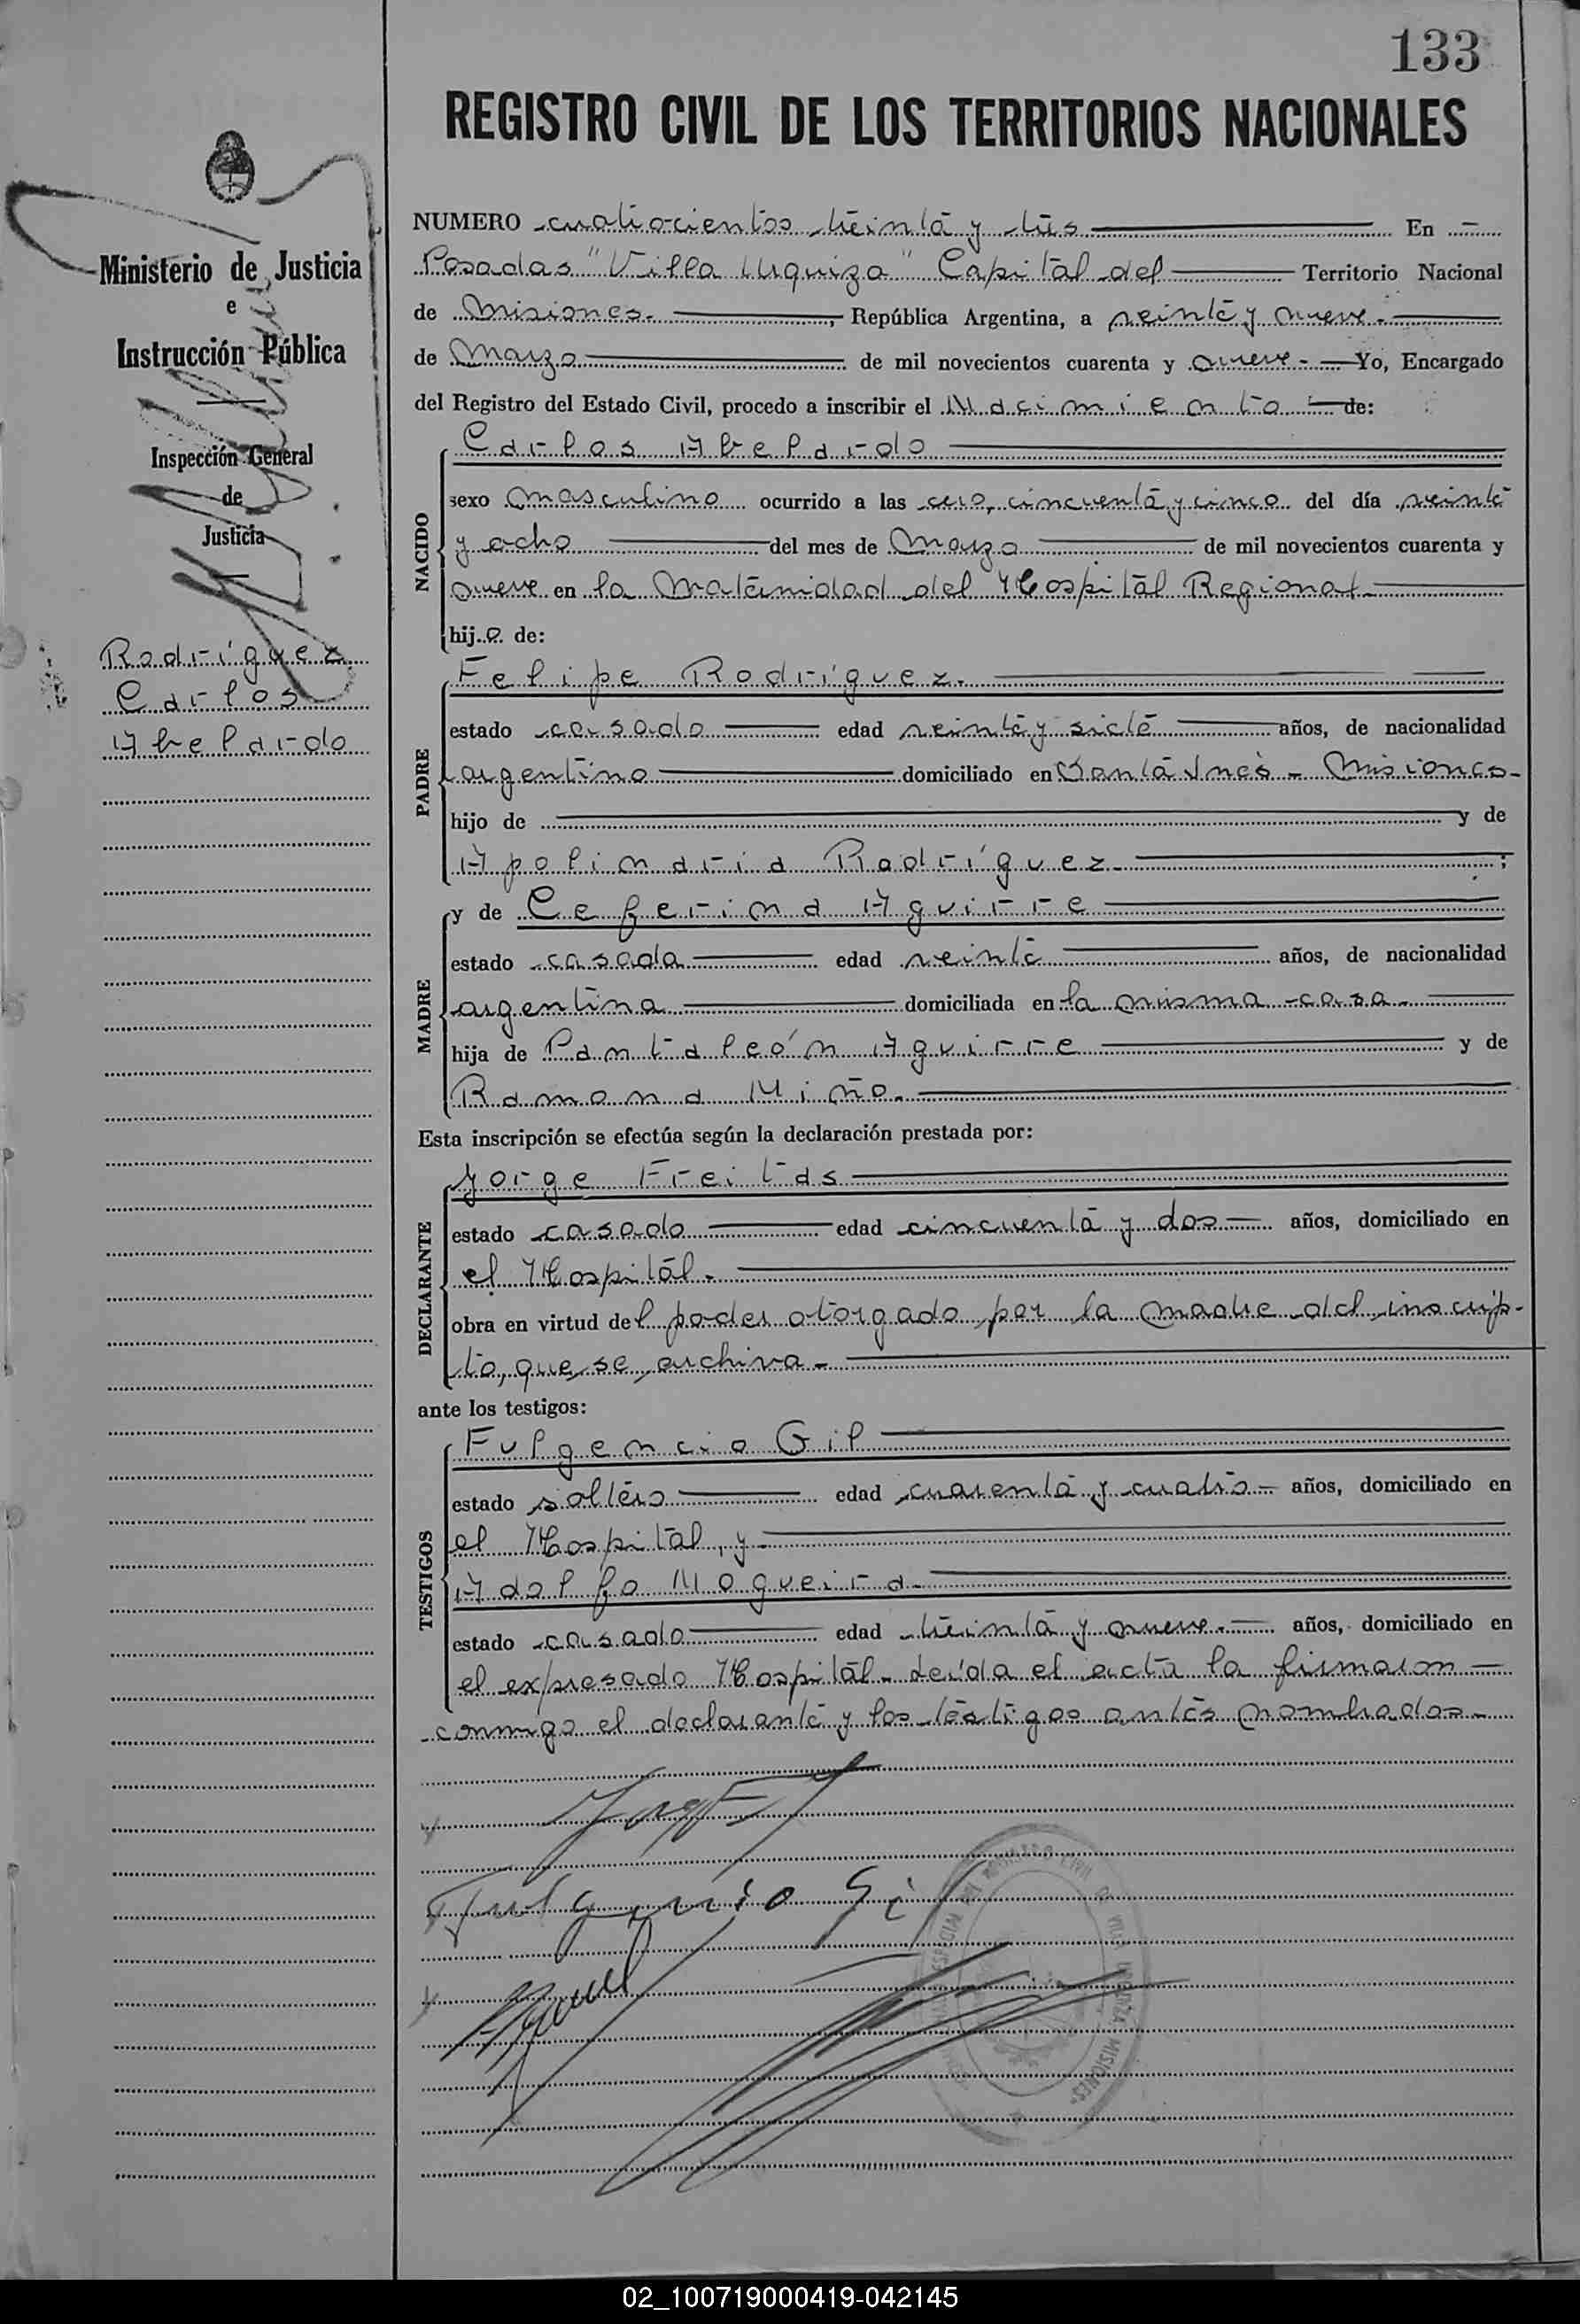 133
REGISTRO CIVIL DE LOS TERRITORIOS NACIONALES
Ministerio de Justicia
e
Instrucción Pública
Inspección General
de
Justicia
Rodríguez
Carlos
Abelardo
NUMERO cuatrocientos treinta y tres En
Posadas "Villa Urquiza" Capital del Territorio Nacional
de Misiones. , República Argentina, a veinte y nueve.
de Marzo de mil novecientos cuarenta y nueve. Yo, Encargado
del Registro del Estado Civil, procedo a inscribir el Nacimiento de:
NACIDO
Carlos Abelardo
sexo masculino ocurrido a las cero, cincuenta y cinco del día veinte
y ocho del mes de Marzo de mil novecientos cuarenta y
nueve en la Maternidad del Hospital Regional.
hijo de:
PADRE
Felipe Rodríguez.
estado casado edad veinte y siete años, de nacionalidad
argentino domiciliado en Santa Inés - Misiones-
hijo de y de
Apolinaria Rodríguez. ;
MADRE
y de Ceferina Aguirre
estado casada edad veinte años, de nacionalidad
argentina domiciliada en la misma casa.
hija de Pantaleón Aguirre y de
Ramona Miño.
Esta inscripción se efectúa según la declaración prestada por:
DECLARANTE
Jorge Freitas
estado casado edad cincuenta y dos años, domiciliado en
el Hospital.
obra en virtud del poder otorgado por la madre del inscrip-
to, que se archiva.
ante los testigos:
TESTIGOS
Fulgencio Gil
estado soltero edad cuarenta y cuatro años, domiciliado en
el Hospital, y
Adolfo Nogueira.
estado casado edad treinta y nueve. años, domiciliado en
el expresado Hospital. Leída el acta la firmaron
conmigo el declarante y los testigos antes nombrados.
Fulgencio Gil
02_100719000419-042145